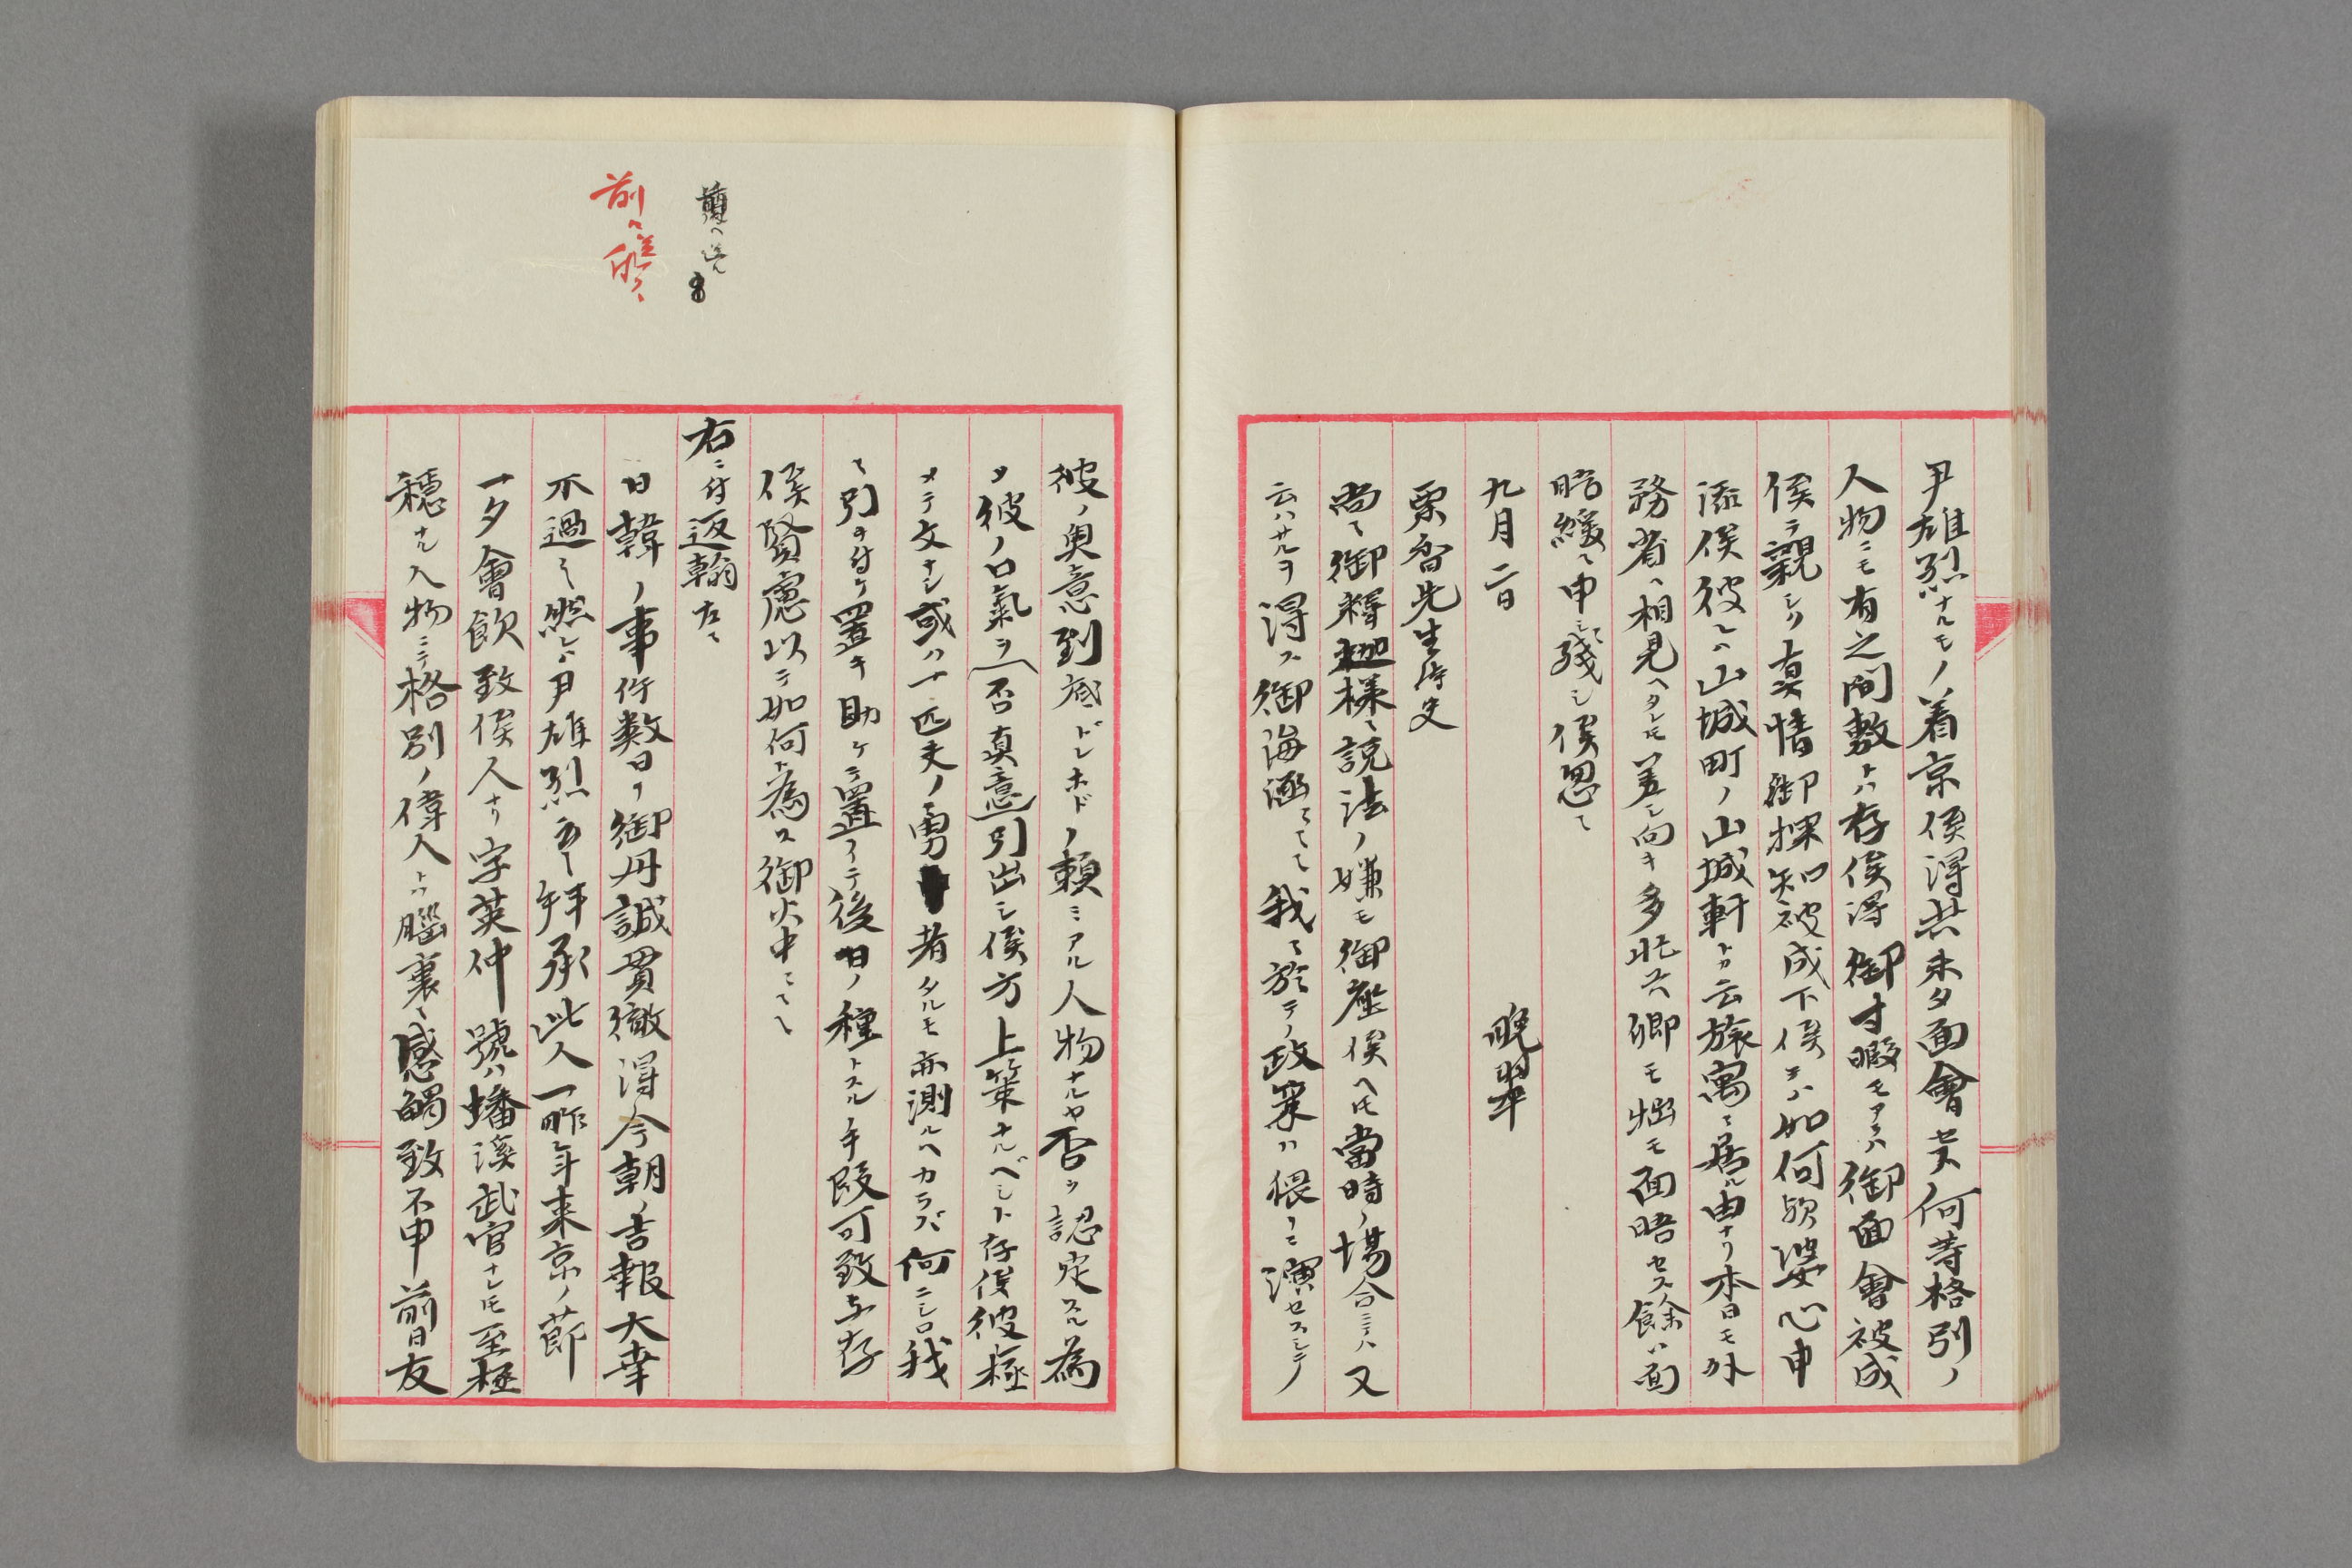 尹雄烈ナルモノ着京候得共未タ面會セス何等格別ノ
人物ニモ有之間敷トハ存候得御寸暇モアラハ御面會被成
候テ親シク真情御探知被成下候テハ如何歟婆心申
添候彼レハ山城町ノ山城軒トカ云旅寓ニ居ル由ナリ本日モ外
務省ヘ相見ヘタレ圧差シ向キ多忙ニ卿モ拙モ面晤セス餘ハ面
晤緩々申シ残シ候怱々
九月二日
晩翠
栗香先生侍史
尚々御釋迦様ニ説法ノ嫌モ御座候ヘ圧當時ノ場合ニテハ又
云ハサルヲ得ス御海涵々々我ニ於テノ政策ハ猥リニ演セスシテ
彼ノ奥意到底ドレホドノ頼ミアル人物ナルヤ否ヲ認定スル為
メ彼ノ口氣ヲ(否真意)引出シ候方上策ナルベシト存候彼極
メテ文ナシ或ハ一匹夫ノ勇者タルモ亦測ルヘカラズ何ニシロ我
ニ引キ付ケ置キ助ケ置イテ後日ノ種トスル手段可致ト存
候賢慮以テ如何ト為ス御火中々々
右ニ付返翰左ニ
日韓ノ事件数日ノ御丹誠貫徹得今朝ノ吉報大幸
不過之然レハ尹雄烈云々拝承此人一昨年来京ノ節
一夕會飲致候人ナリ字英仲號ハ蟠溪武官ナレ圧至極
穏ナル人物ニテ格別ノ偉人トハ腦裏ニ感觸致不申前日友